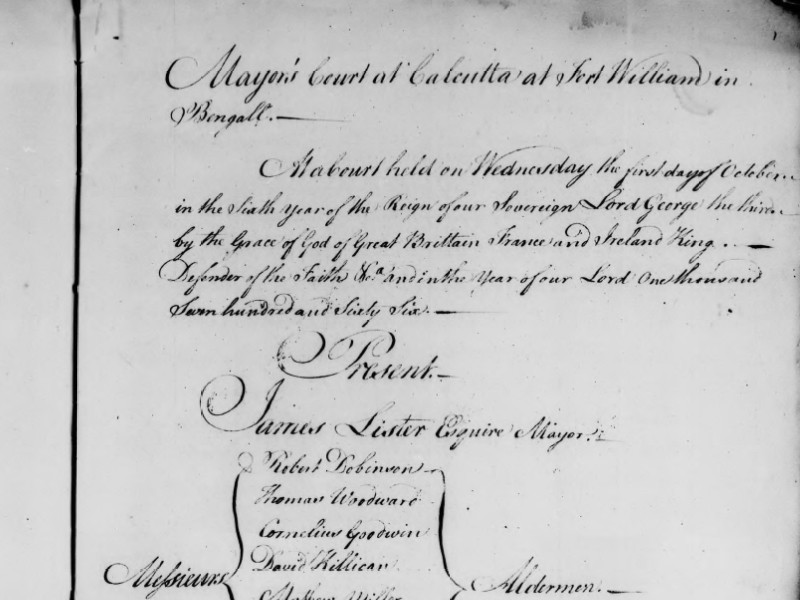 Mayor's Court at Calcutta at Fort William in
Bengall. —
At a Court held on Wednesday the first day of October
in the Sixth Year of the Reign of our Sovereign Lord George the third
by the Grace of God of Great Brittain France and Ireland King. —
Defender of the Faith &ca and in the Year of our Lord One thousand
Seven hundred and Sixty Six. —
Present. —
James Lister Esquire Mayor.
Robert Dobinson
Thomas Woodward
Cornelius Goodwin
David Killican
Messieurs Mathew Miller Aldermen. —